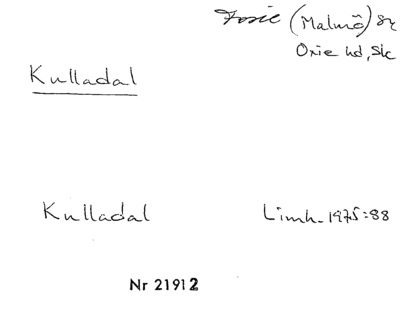 Fosie (Malmö) sn
Oxie hd, Sk
Kulladal
Kulladal Limh. 1975:88
Nr 21912